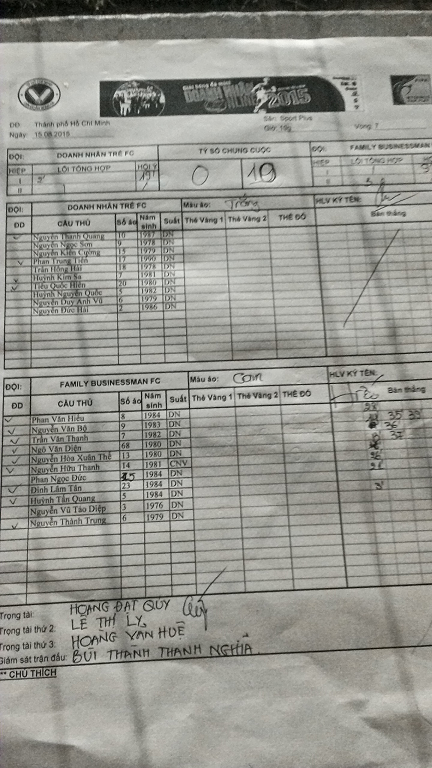 2015
ĐĐ: Thành phố Hồ Chí Minh Sân: Sport Plus
Ngày: 15.08.2015 Giờ: 19g Vòng: 7
ĐỘI: DOANH NHÂN TRẺ FC TỶ SỐ CHUNG CUỘC ĐỘI: FAMILY BUSINESSMAN FC
HIỆP LỖI TỔNG HỢP HỘI Ý 0 19 HIỆP LỖI TỔNG HỢP
I I
II II
ĐỘI: DOANH NHÂN TRẺ FC Màu áo: Trắng HLV KÝ TÊN:
ĐD CẦU THỦ Số áo Năm sinh Suất Thẻ Vàng 1 Thẻ Vàng 2 THẺ ĐỎ Bàn thắng
Nguyễn Thanh Quang 10 1987 DN
Nguyễn Ngọc Sơn 9 1978 DN
Nguyễn Kiên Cường 15 1979 DN
Phan Trung Tiến 17 1990 DN
Trần Hồng Hải 18 1978 DN
Huỳnh Kim Sa 7 1981 DN
Tiêu Quốc Hiền 20 1980 DN
Huỳnh Nguyên Quốc 5 1982 DN
Nguyễn Duy Anh Vũ 6 1979 DN
Nguyễn Đức Hải 2 1986 DN
ĐỘI: FAMILY BUSINESSMAN FC Màu áo: Cam HLV KÝ TÊN:
ĐD CẦU THỦ Số áo Năm sinh Suất Thẻ Vàng 1 Thẻ Vàng 2 THẺ ĐỎ Bàn thắng
Phan Văn Hiếu 8 1984 DN
Nguyễn Văn Bộ 9 1983 DN 35 39
Trần Văn Thanh 7 1982 DN 36
Ngô Văn Diện 68 1980 DN 37
Nguyễn Hòa Xuân Thể 13 1980 DN
Nguyễn Hữu Thanh 14 1981 CNV
Phan Ngọc Đức 15 1984 DN
Đinh Lâm Tấn 23 1984 DN
Huỳnh Tấn Quang 5 1984 DN
Nguyễn Vũ Táo Diệp 3 1976 DN
Nguyễn Thành Trung 6 1979 DN
Trọng tài: HOÀNG ĐẠT QUÝ
Trọng tài thứ 2: LÊ THỊ LY
Trọng tài thứ 3: HOÀNG VĂN HUỆ
Giám sát trận đấu: BÙI THÀNH THANH NGHĨA
** CHÚ THÍCH